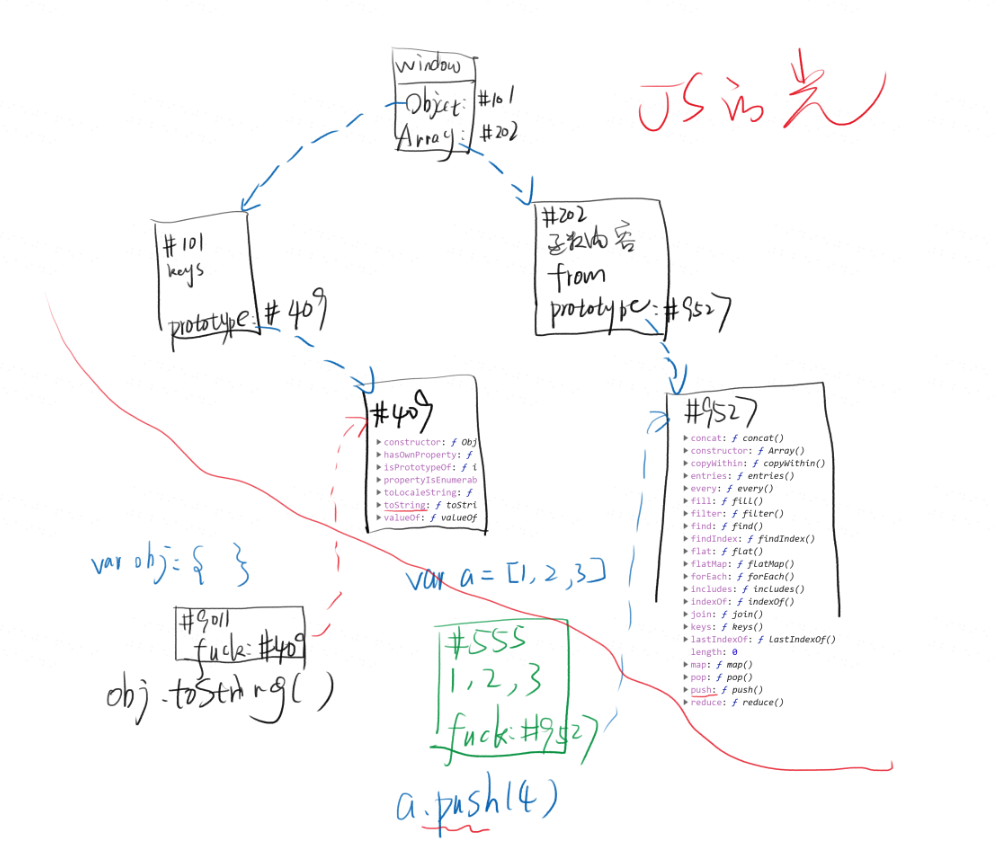 window
Object: #101
Array: #202
JS的光
#101
keys
prototype: #409
#202
函数内容
from
prototype: #9527
#409
constructor: ƒ Obj
hasOwnProperty: ƒ
isPrototypeOf: ƒ i
propertyIsEnumerab
toLocaleString: ƒ
toString: ƒ toStri
valueOf: ƒ valueOf
#9527
concat: ƒ concat()
constructor: ƒ Array()
copyWithin: ƒ copyWithin()
entries: ƒ entries()
every: ƒ every()
fill: ƒ fill()
filter: ƒ filter()
find: ƒ find()
findIndex: ƒ findIndex()
flat: ƒ flat()
flatMap: ƒ flatMap()
forEach: ƒ forEach()
includes: ƒ includes()
indexOf: ƒ indexOf()
join: ƒ join()
keys: ƒ keys()
lastIndexOf: ƒ lastIndexOf()
length: 0
map: ƒ map()
pop: ƒ pop()
push: ƒ push()
reduce: ƒ reduce()
var obj = { }
#9011
fuck: #409
obj.toString()
var a = [1, 2, 3]
#555
1, 2, 3
fuck: #9527
a.push(4)